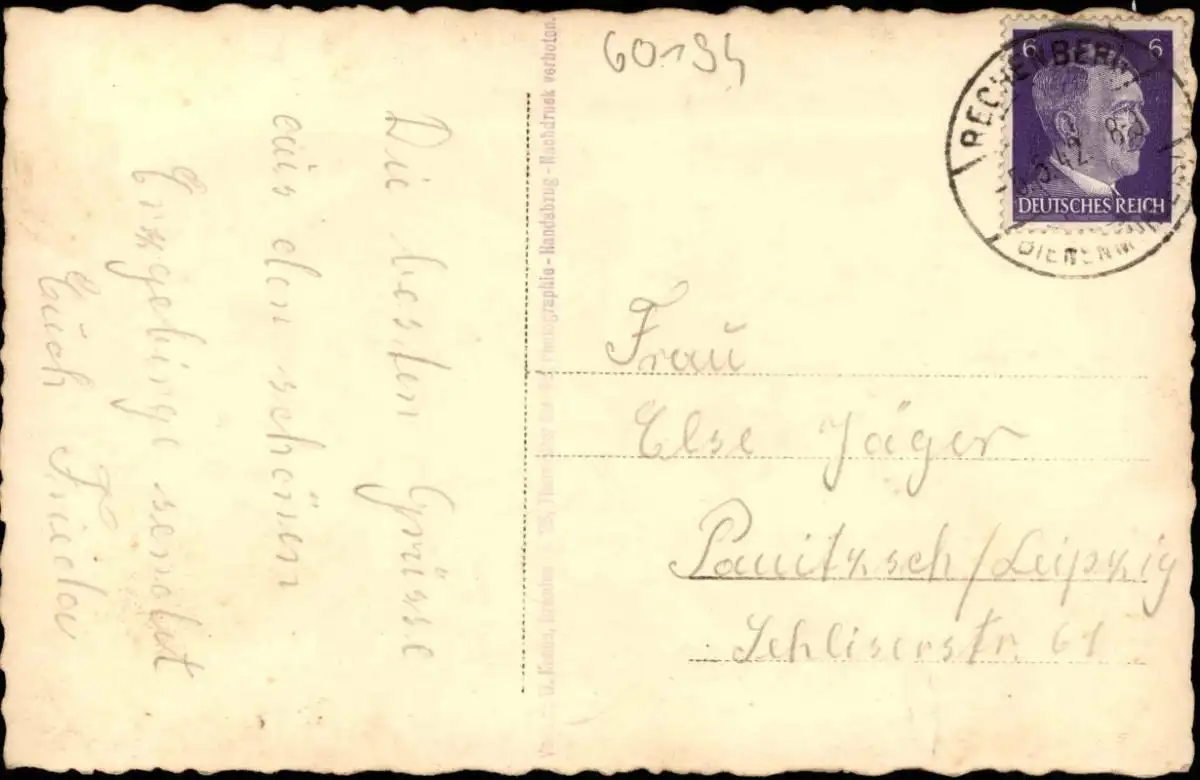 60194
6 6
DEUTSCHES REICH
RECHENBERG
BIENENMÜHLE
.5.42 8
Die besten Grüsse
aus den schönen
Erzgebirge sendet
Euch Frieda
Photographie - Handabzug - Nachdruck verboten.
Frau
Else Jäger
Panitzsch/Leipzig
Schliserstr. 61